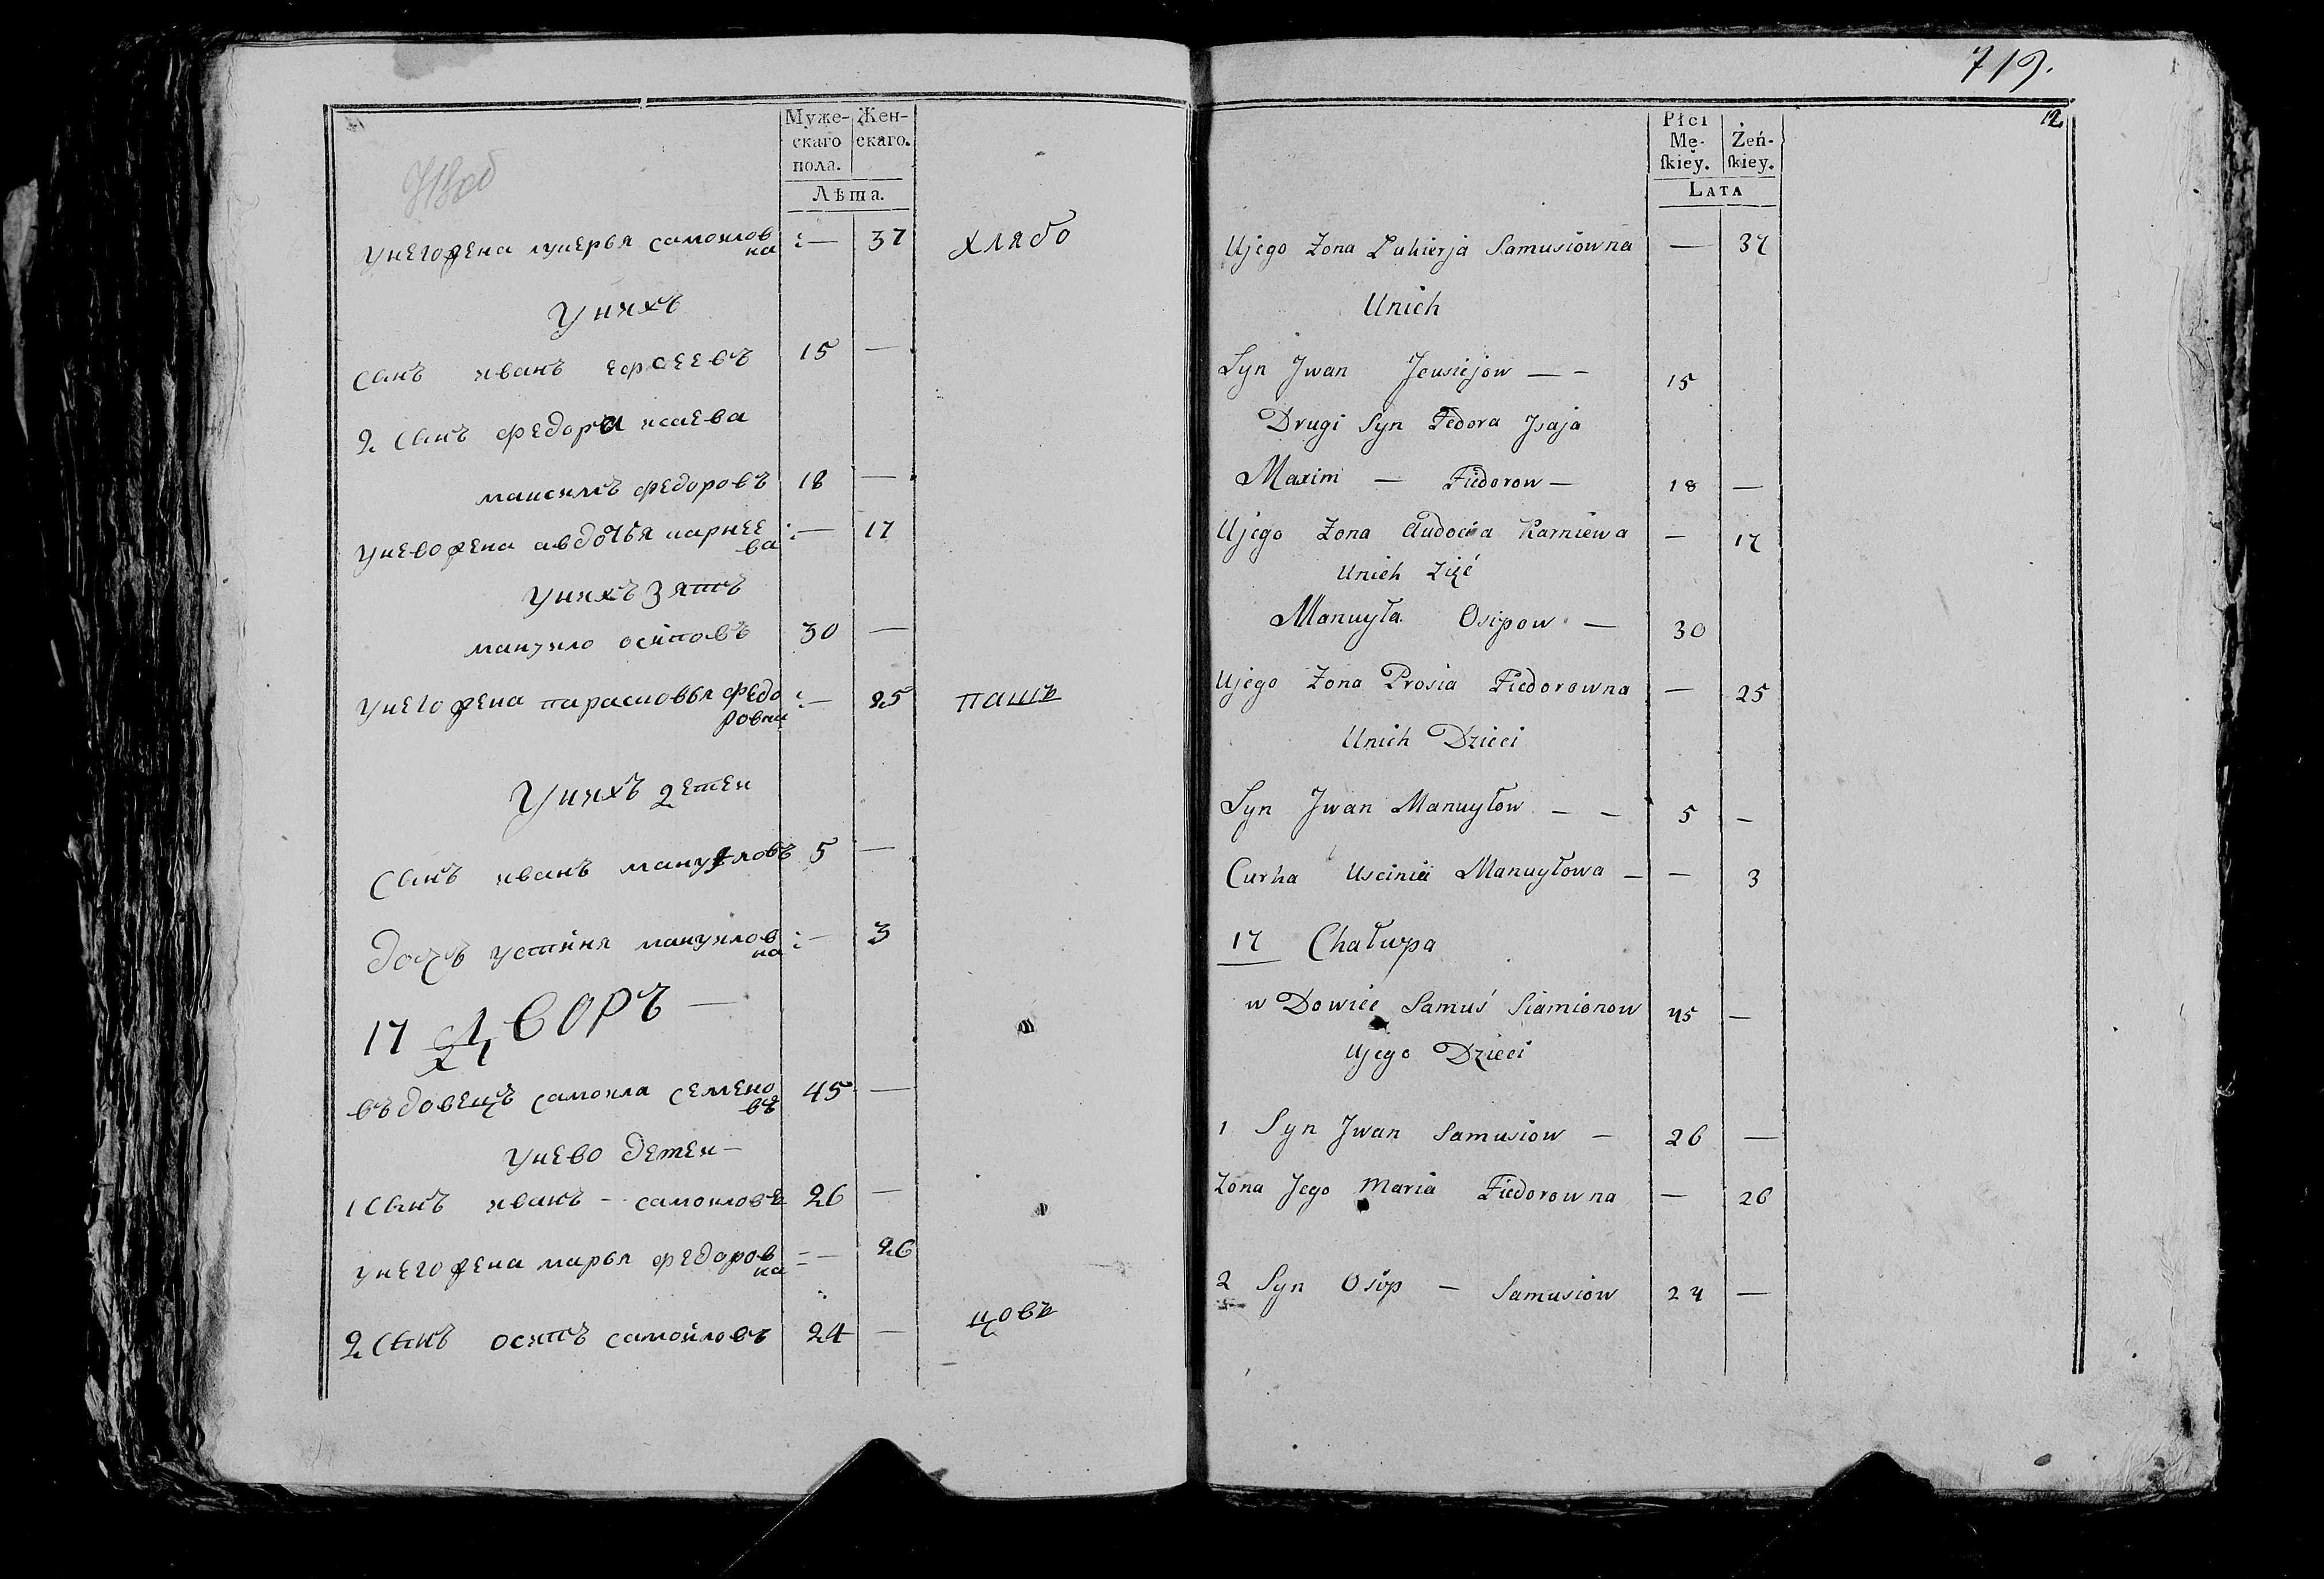 Муже-
скаго
пола.
Жен-
скаго.
Лѣта.
унего жена лукерья самоилов
на — 37
хлябо
Унихъ
Сынъ иванъ ефсеевъ 15 —
2 Сынъ федора исаева
максимъ федоровъ 18 —
унево жена авдотья карнее
ва — 17
Унихъ Зять
мануило осиповъ 30 —
унего жена парасковья федо
ровна — 25
пашъ
Унихъ детеи
Сынъ иванъ мануиловъ 5 —
дочь устиня мануилов
на — 3
17 Дворъ —
въдовецъ самоила семено
въ 45 —
унево детеи —
1 Сынъ иванъ - самоиловъ 26 —
унего жена марья федоров
на — 26
2 Сынъ осипъ самоиловъ 24 —
цовъ
719.
12
Płci
Mę-
ſkiey.
Żeń-
ſkiey.
LATA
Ujego Zona Łukierja Samusiowna — 37
Unich
Syn Jwan Jeusiejow — - 15
Drugi Syn Fedora Jsaja
Maxim — Fiedorow — 18 —
Ujego Zona Audocia Karniewa — 17
Unich Zięć
Manuyła Osipow — 30
Ujego Zona Prosia Fiedorowna — 25
Unich Dzieci
Syn Jwan Manuyłow — — 5 —
Curka Uscinia Manuyłowa — — 3
17 Chałupa
w Dowiec Samuś Siamionow 45 —
Ujego Dzieci
1 Syn Jwan Samusiow — 26 —
Zona Jego Maria Fiedorowna — 26
2 Syn Osip — Samusiow 24 —